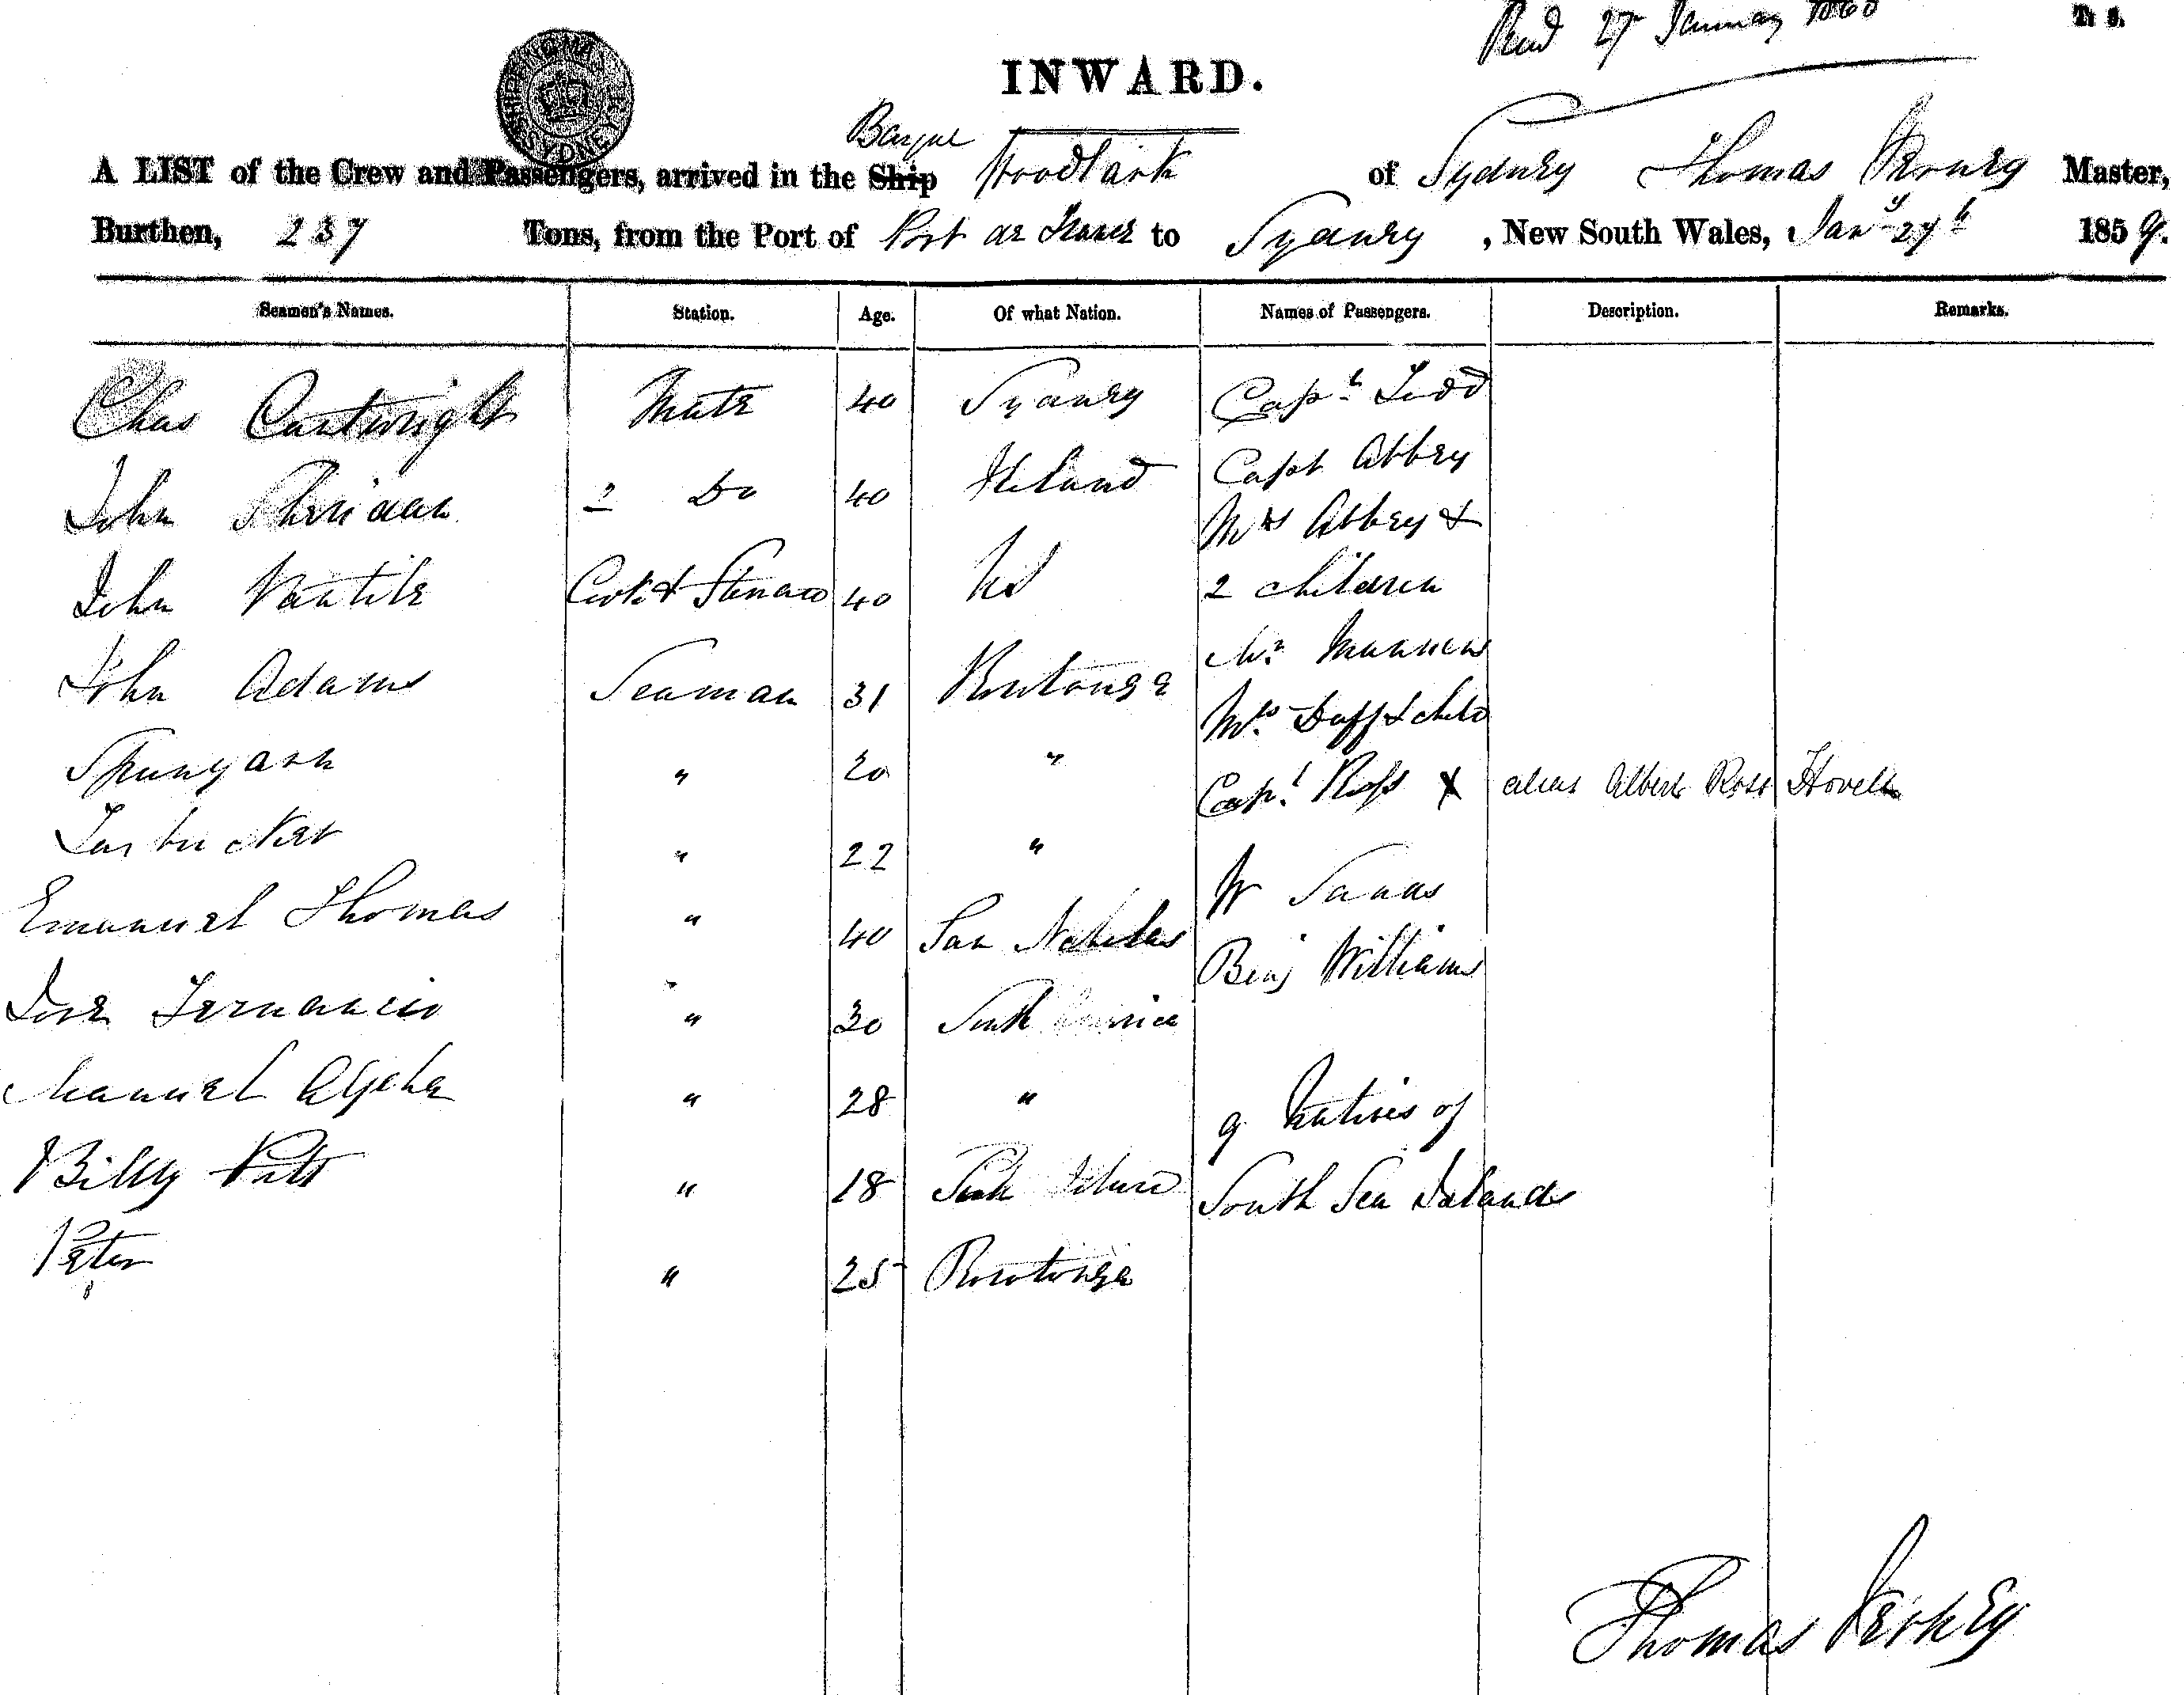 Recd 27 January 1860
INWARD.
Barque
A LIST of the Crew and Passengers, arrived in the Ship Woodlark of Sydney Thomas Master,
Burthen, 237 Tons, from the Port of Port de France to Sydney, New South Wales, Jany 27th 1859.
Seamen's Names. Station. Age. Of what Nation. Names of Passengers. Description. Remarks.
Chas Cartwright Mate 40 Sydney Capt Todd
John Sheridan 2 Do 40 Ireland Capt Abbey
Mrs Abbey &
John Cook & Steward 40 US 2 children
John Adams Seaman 31 Rorotonga Mr
Mrs Duff & child
Spunyarn " 20 "
Capt Ross X alias Albert Ross Hovell
Tarbucket " 22 "
W Sands
Emanuel Thomas " 40 San Nicholas
Benj Williams
Jose " 30 South America
Manuel " 28 "
9 Natives of
Billy Pitt " 18 Island South Sea Islands
Peter " 25 Rorotonga
Thomas
SHIPPING MASTER SYDNEY